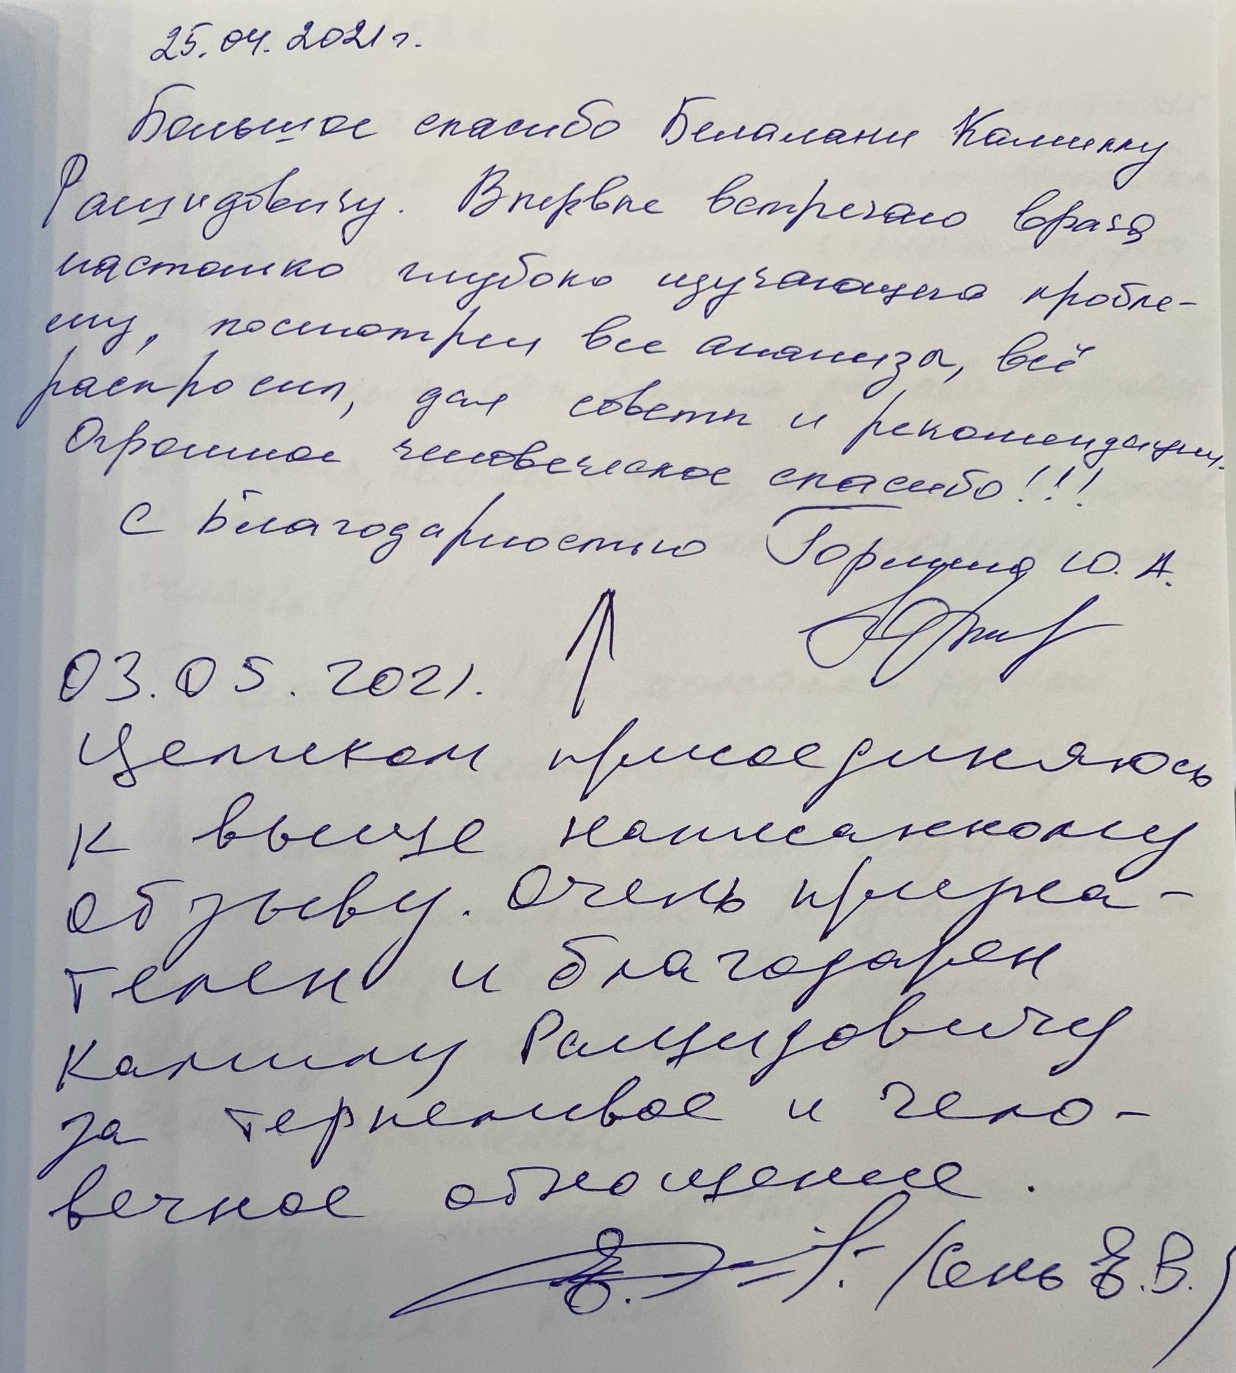 25.04.2021 г.
Большое спасибо Белалани Камиллу
Рашидовичу. Впервые встречаю врача
настолько глубоко изучающего пробле-
му, посмотрел все анализы, всё
распросил, дал советы и рекомендации.
Огромное человеческое спасибо!!!
С Благодарностью Ю. А.
03.05.2021.
Целиком присоединяюсь
к выше написанному
отзыву. Очень призна-
телен и благодарен
Камилу Рашидовичу
за терпеливое и чело-
вечное отношение.
(Сень Е.В.)